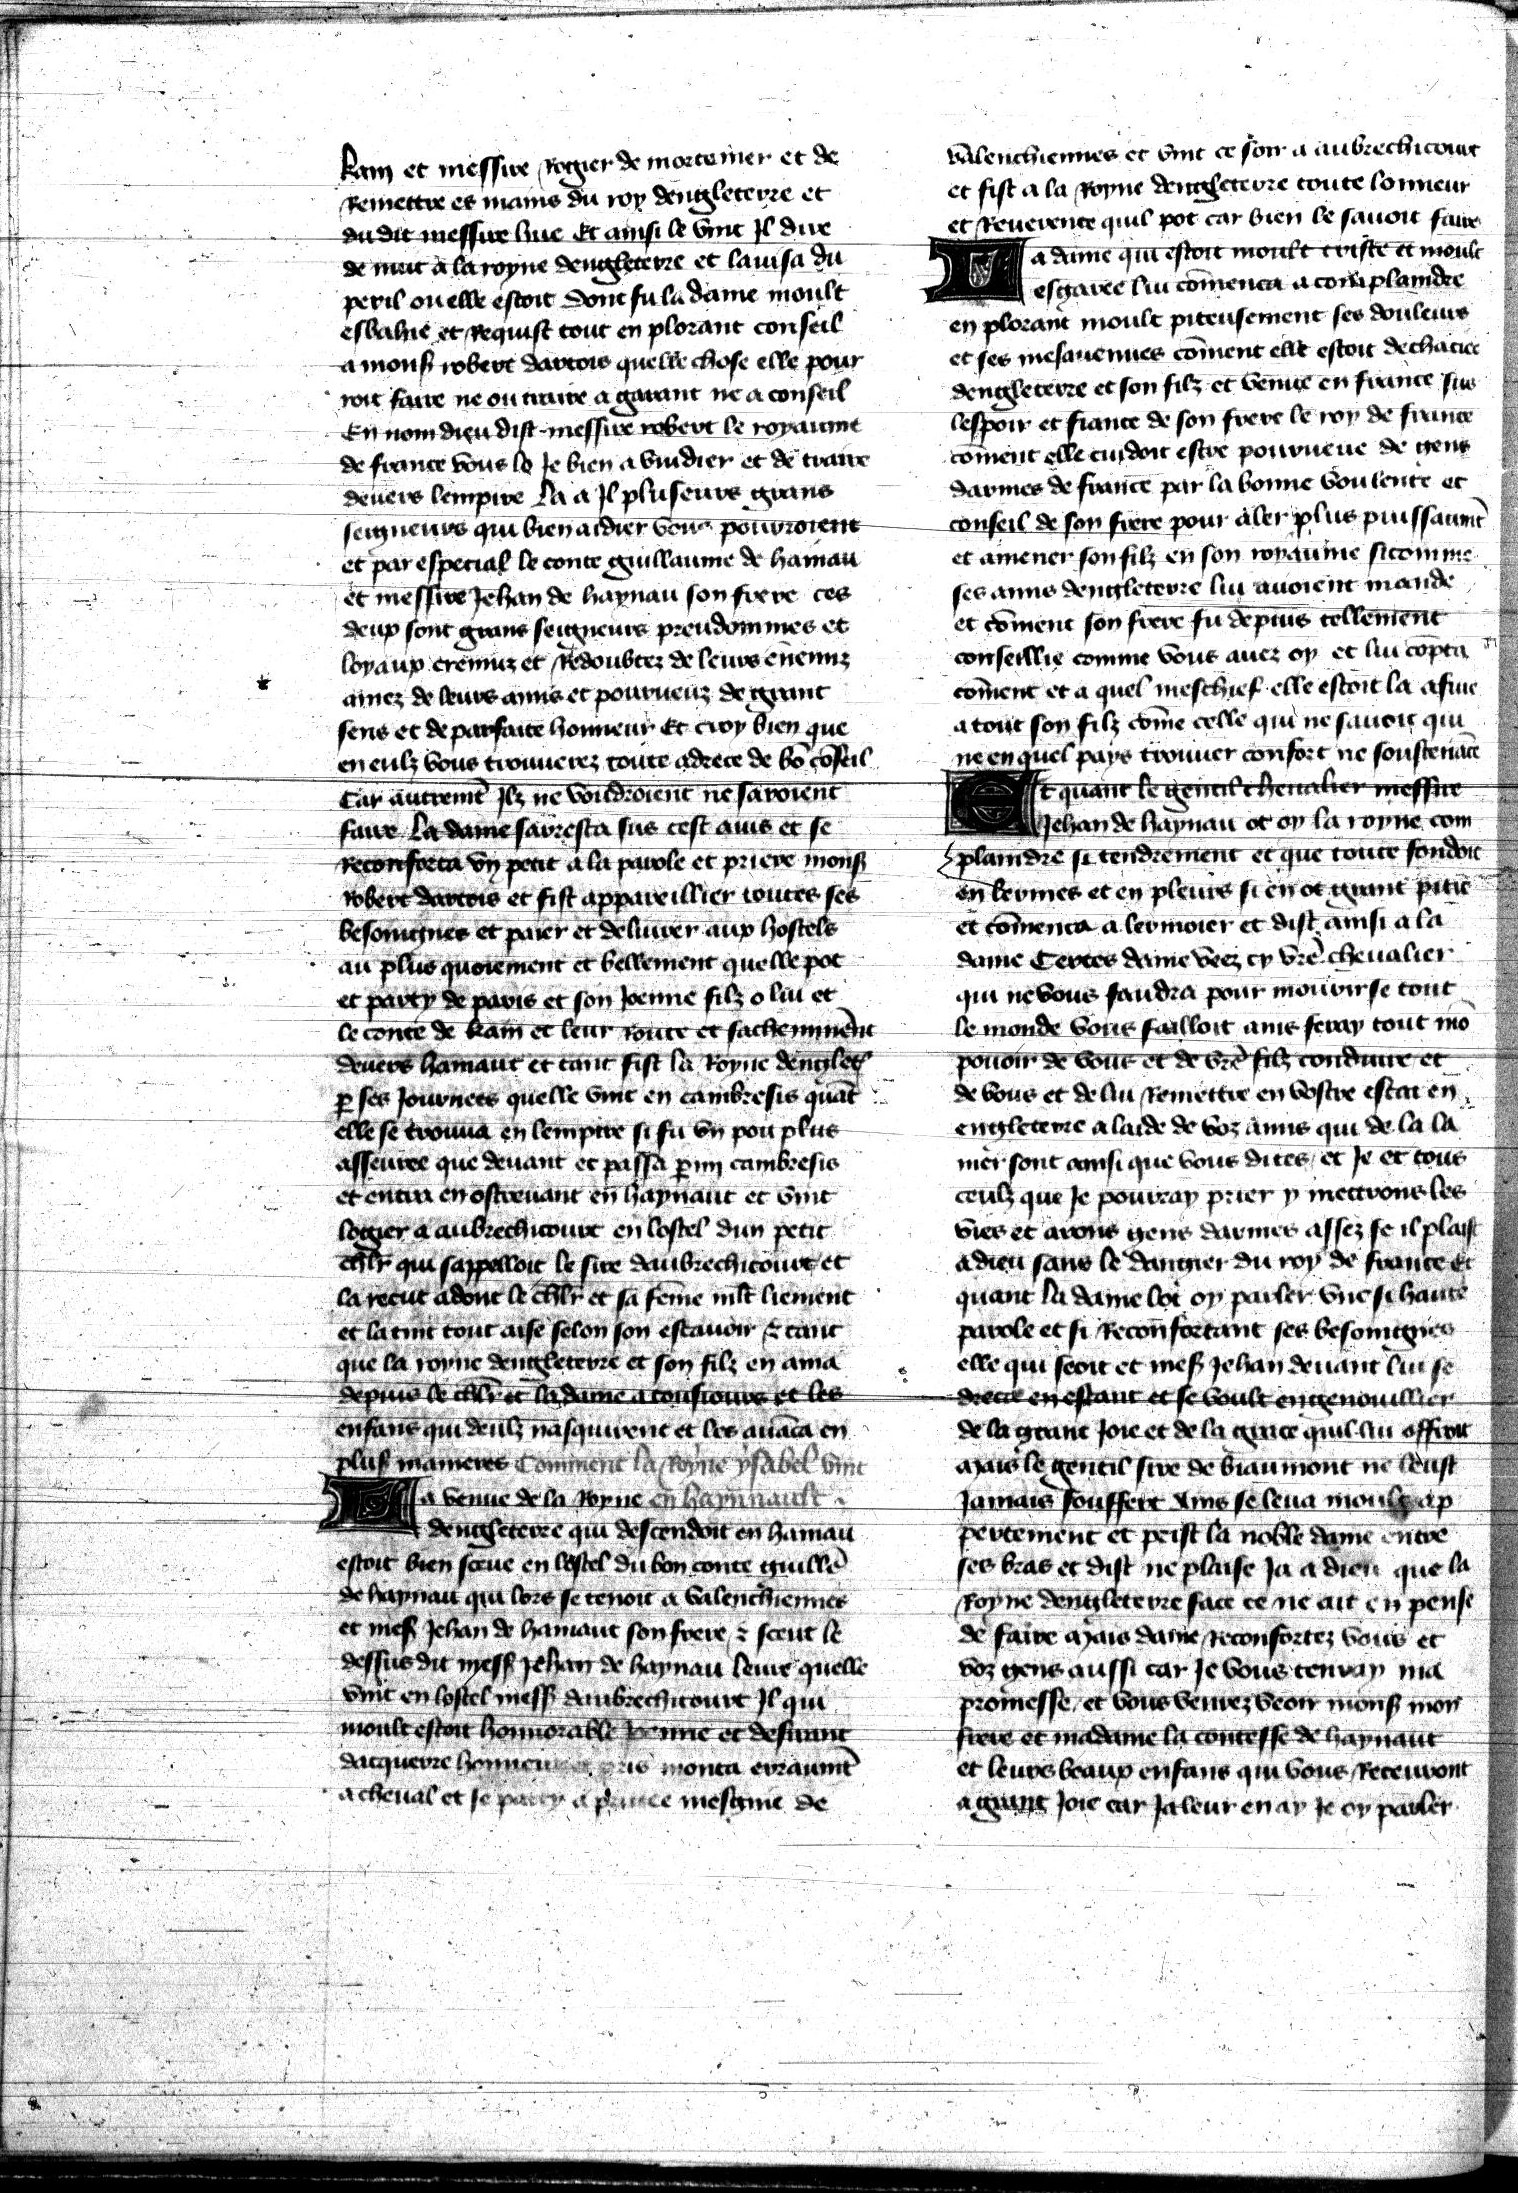 kam et messire Rogier de mortemer et de
Remettre es mains du roy dengleterre et
du dit messire hue Et ainsi le vint Il dire
de nuit a la royne dengleterre et lavisa du
peril ou elle estoit Dont fu la dame moult
esbahie et Requist tout en plorant conseil
a monsr robert dartois quelle chose elle pour
roit faire ne ou traire a garant ne a conseil
En nom dieu dist messire robert le royaume
de france vous lo Je bien a vuidier et de traire
devers lempire La a Il pluseurs grans
seigneurs qui bien aidier vous pourroient
et par especial le conte guillaume de hainau
et messire Jehan de haynau son frere ces
deux sont grans seigneurs preudommes et
loyaux cremuz et Redoubtez de leurs enemiz
amez de leurs amis et pourveuz de grant
sens et de parfaite honneur Et croy bien que
en eulz vous trouverez toute adrece de bō cōseil
Car autremēt Ilz ne voudroient ne saroient
faire La dame sarresta sus cest avis et se
Reconforta vn petit a la parole et priere monsr
Robert dartois et fist appareillier toutes ses
besoingnes et paier et delivrer aux hostels
au plus quoiement et bellement quelle pot
et party de paris et son Joenne filz o lui et
le conte de kam et leur route et sacheminēnt
devers hainaut et tant fist la Royne dengleterr
p̄ ses Journees quelle vint en cambresis quāt
elle se trouva en lempire si fu vn pou plus
asseuree que devant et passa p̄mi cambresis
et entra en ostrevant en haynaut et vint
logier a aubrechicourt en lostel dun petit
chlr̄ qui sappelloit le sire daubrechicourt et
la recut adont le chlr̄ et sa fēme mlt̄ liement
et la tint tout aise selon son estavoir & tant
que la royne dengleterre et son filz en ama
depuis le chlr̄ et la dame a tousiours et les
enfans qui deulz nasquirent et les avāca en
plusr manieres Comment la Royne ysabel vint
La venue de la Royne en haynnault
dengleterre qui descendoit en hainau
estoit bien sceue en lostel du bon conte guillē
de haynau qui lors se tenoit a valenchiennes
et messr Jehan de hainaut son frere & sceut le
dessus dit messr Jehan de haynau leure quelle
vint en lostel messr daubrechicourt Il qui
moult estoit honnorable Joenne et desirant
dacquerre honneur et pris monta erraumēt
a cheval et se party a privee mesgnie de
valenchiennes et vint ce soir a aubrechicourt
et fist a la Royne dengleterre toute lonneur
et Reverence quil pot car bien le savoit faire
La dame qui estoit moult triste et moult
esgaree lui cōmenca a complaindre
en plorant moult piteusement ses douleurs
et ses mesavenues cōment elle estoit dechacee
dengleterre et son filz et venue en france sus
lespoir et fiance de son frere le roy de france
cōment elle cuidoit estre pourveue de gens
darmes de france par la bonne voulente et
conseil de son frere pour aler plus puissaumt̄
et amener son filz en son royaume si comme
ses amis dengleterre lui avoient mande
et cōment son frere fu depuis tellement
conseillie comme vous avez oy et lui cōpta
cōment et a quel meschief elle estoit la afuie
a tout son filz cōme celle qui ne savoit qui
ne en quel pays trouver confort ne soustenāce
Et quant le gentil chevalier messire
Jehan de haynau ot oy la royne com
plaindre si tendrement et que toute fondoit
en lermes et en pleurs si en ot grant pitie
et cōmenca a lermoier et dist ainsi a la
dame Certes dame veez cy vrē chevalier
qui ne vous faudra pour mourir se tout
le monde vous failloit ains feray tout mō
pouoir de vous et de vrē filz conduire et
de vous et de lui Remettre en vostre estat en
engleterre a laide de voz amis qui de la la
mer sont ainsi que vous dites et Je et tous
ceulz que Je pourray prier y mettrons les
vies et arons gens darmes assez se il plaist
a dieu sans le dangier du roy de france Et
quant la dame lot oy parler vne si haute
parole et si Reconfortant ses besoingnes
elle qui seoit et messr Jehan devant lui se
dreca en estant et se voult engenouillier
de la grant Joie et de la grace quil lui offroit
Mais le gentil sire de biaumont ne leust
Jamais souffert Ains se leva moult ap
pertement et prist la noble dame entre
ses bras et dist ne plaise Ja a dieu que la
Royne dengleterre face ce ne ait en pense
de faire Mais dame Reconfortez vous et
voz gens aussi car Je vous tenray ma
promesse et vous venrez veoir monsr mon
frere et madame la contesse de haynaut
et leurs beaux enfans qui vous Recevront
a grant Joie car Ja leur en ay Je oy parler